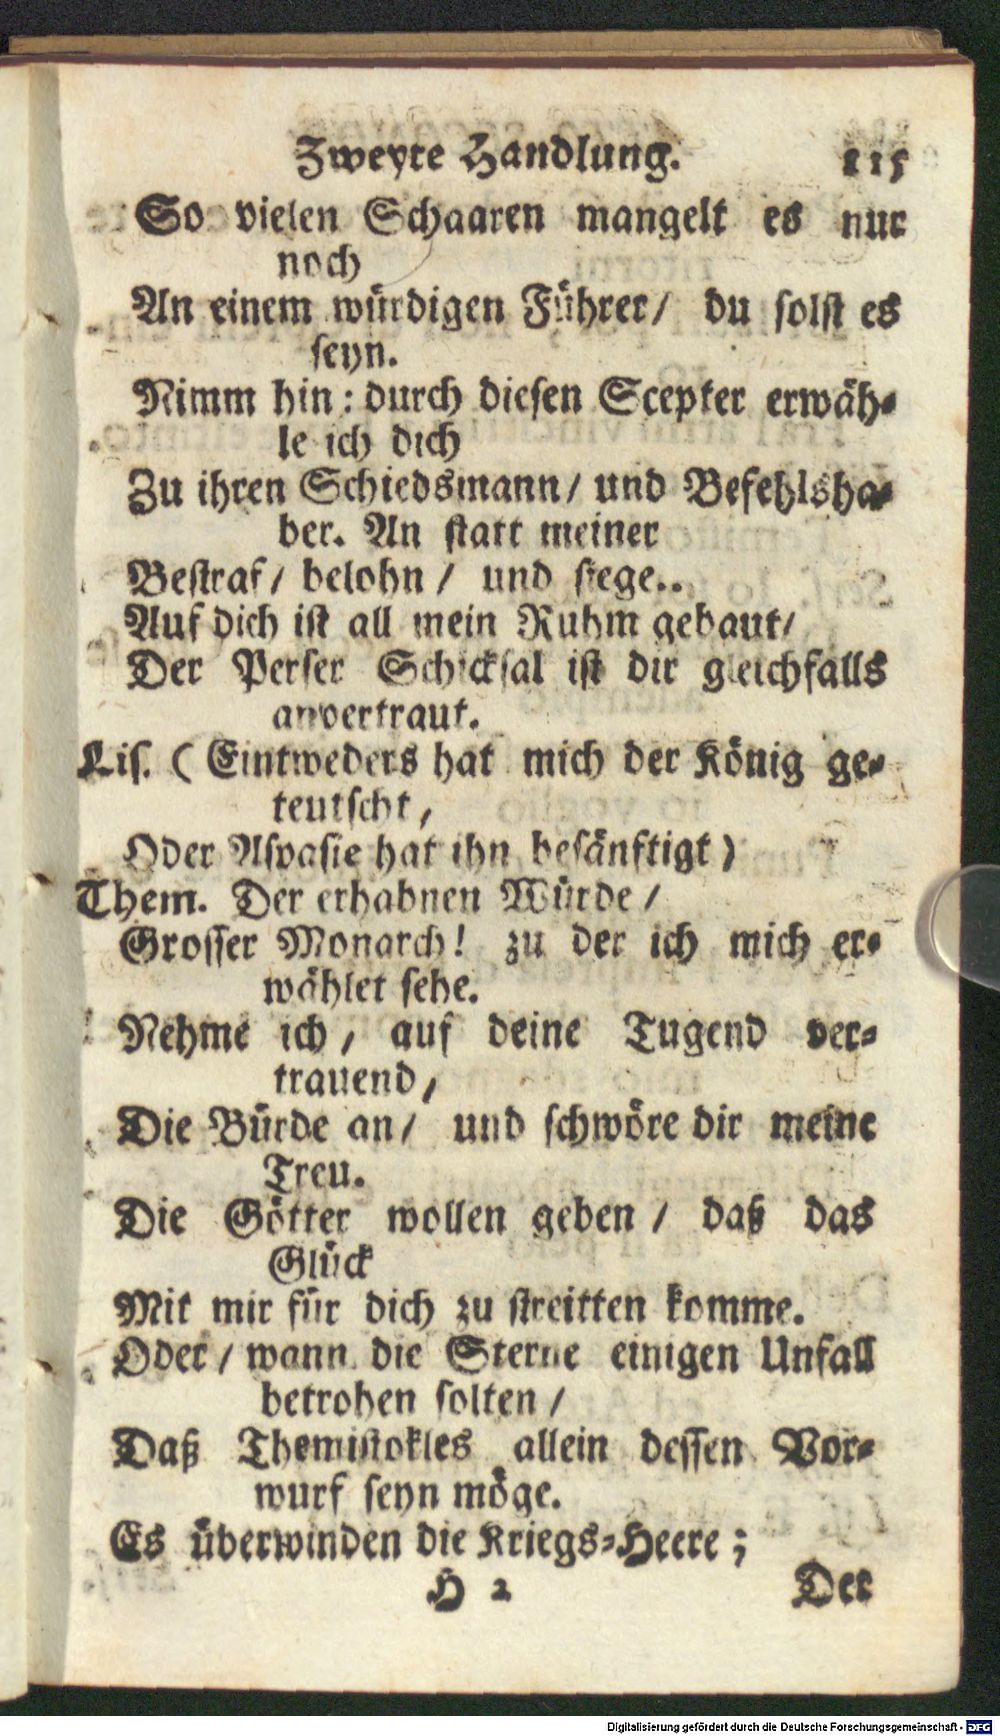 Zweyte Handlung. 115
So vielen Schaaren mangelt es nur
noch
An einem würdigen Führer/ du solst es
seyn.
Nimm hin: durch diesen Scepter erwäh-
le ich dich
Zu ihren Schiedsmann/ und Befehlsha-
ber. An statt meiner
Bestraf/ belohn/ und siege..
Auf dich ist all mein Ruhm gebaut/
Der Perser Schicksal ist dir gleichfalls
anvertraut.
Lis. (Eintweders hat mich der König ge-
teutscht,
Oder Aspasie hat ihn besänftigt)
Them. Der erhabnen Würde/
Grosser Monarch! zu der ich mich er-
wählet sehe.
Nehme ich, auf deine Tugend ver-
trauend,
Die Bürde an/ und schwöre dir meine
Treu.
Die Götter wollen geben/ daß das
Glück
Mit mir für dich zu streitten komme.
Oder/ wann die Sterne einigen Unfall
betrohen solten/
Daß Themistokles allein dessen Vor-
wurf seyn möge.
Es überwinden die Kriegs-Heere;
H 2 Der
Digitalisierung gefördert durch die Deutsche Forschungsgemeinschaft - DFG